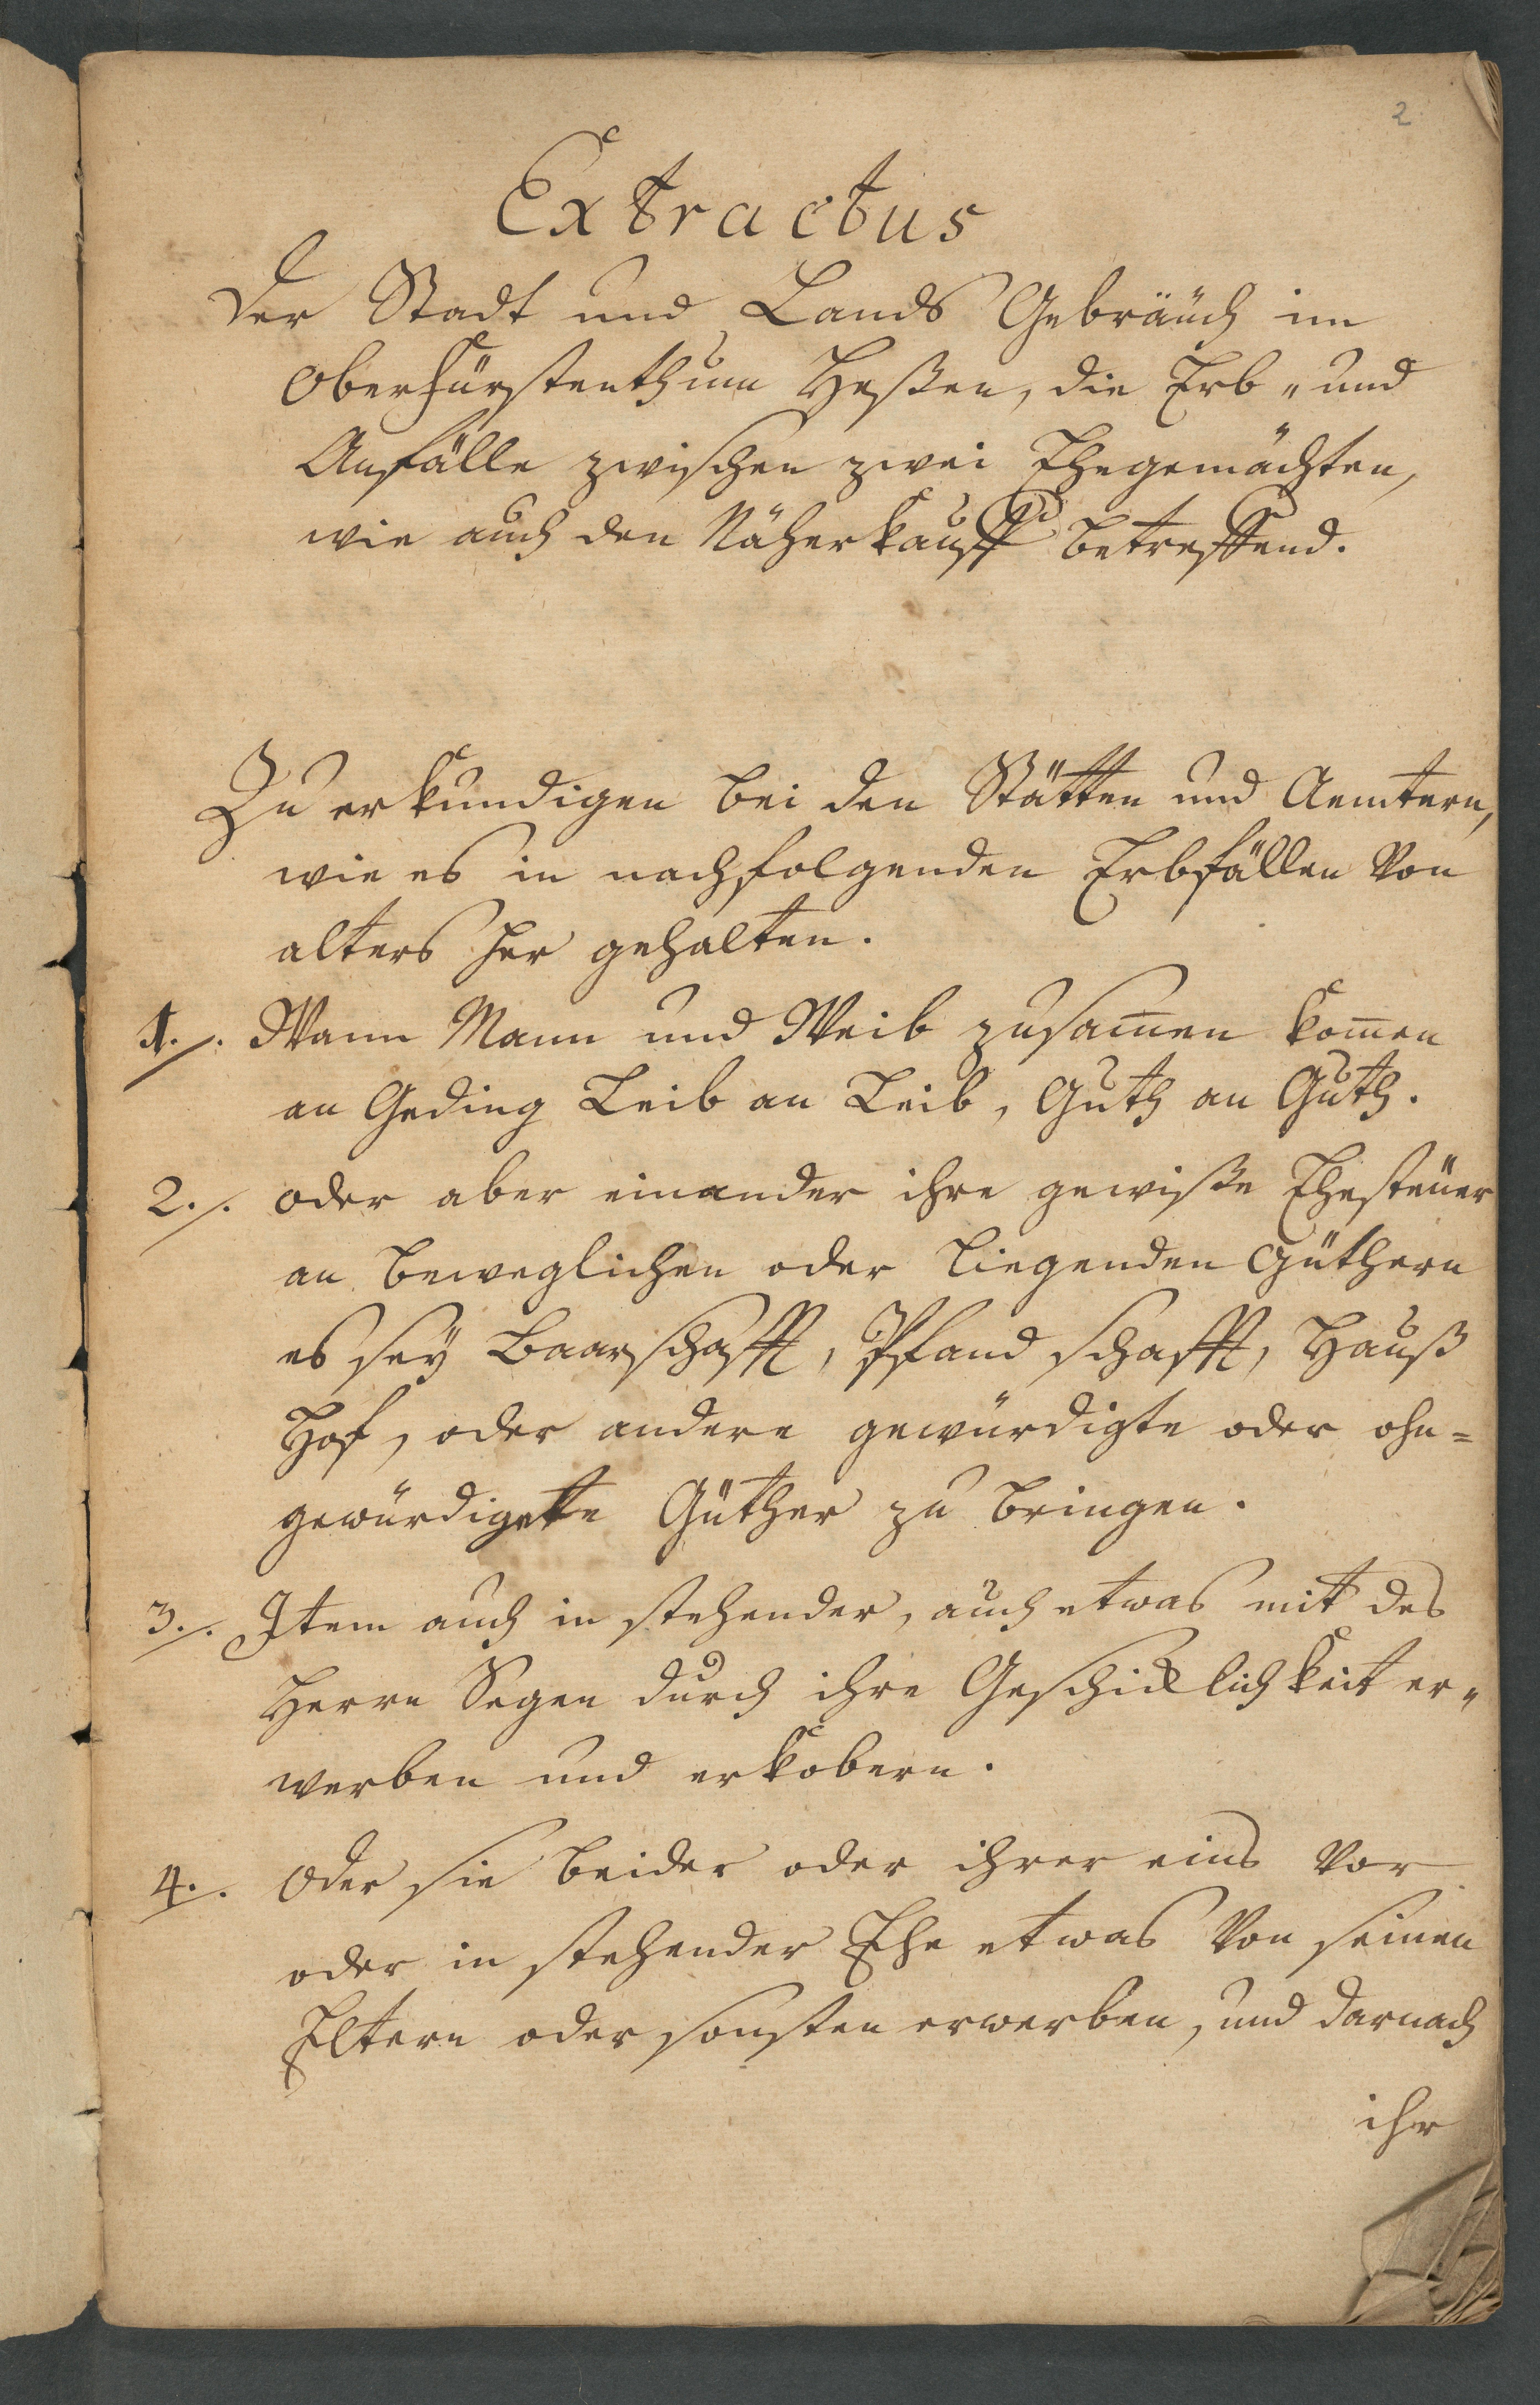 2
Extractus
Der Stadt und Lands Gebräuch im
Oberfürstenthum Heßen, die Erb- und
Anfälle zwischen zwei Ehegemächten,
wie auch den Näherkauff betreffend.
Zu erkundigen bei den Stätten und Aemtern,
wie es in nachfolgenden Erbfällen von
alters her gehalten.
1./. Wann Mann und Weib zusam̄en kom̄en
an Geding Leib an Leib, Guth an Guth.
2./. oder aber einander ihre gewiße Ehesteüer
an beweglichen oder liegenden Güthern
es seÿ Baarschafft, Pfandschafft, Hauß
Hof, oder andere gewürdigte oder ohn=
gewürdigte Güther zu bringen.
3./. Item auch in stehender, auch etwas mit des
Herrn Segen durch ihre Geschicklichkeit er-
werben und erkobern.
4./. Oder sie beider oder ihrer eins vor
oder in stehender Ehe etwas von seinen
Eltern oder sonsten erwerben, und darnach
ihr